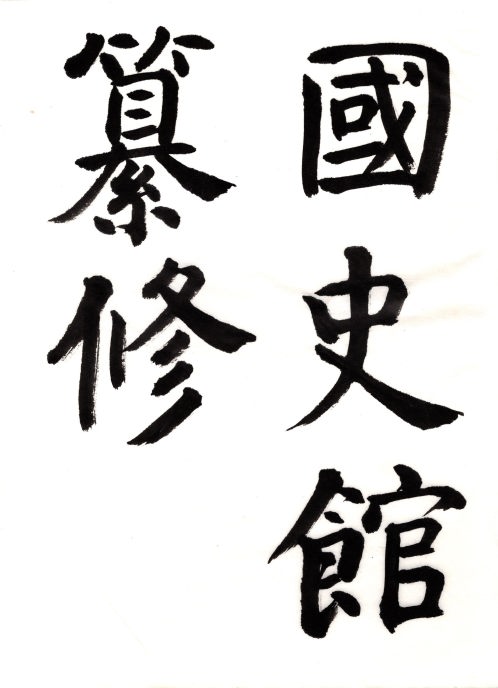 國史館
纂修